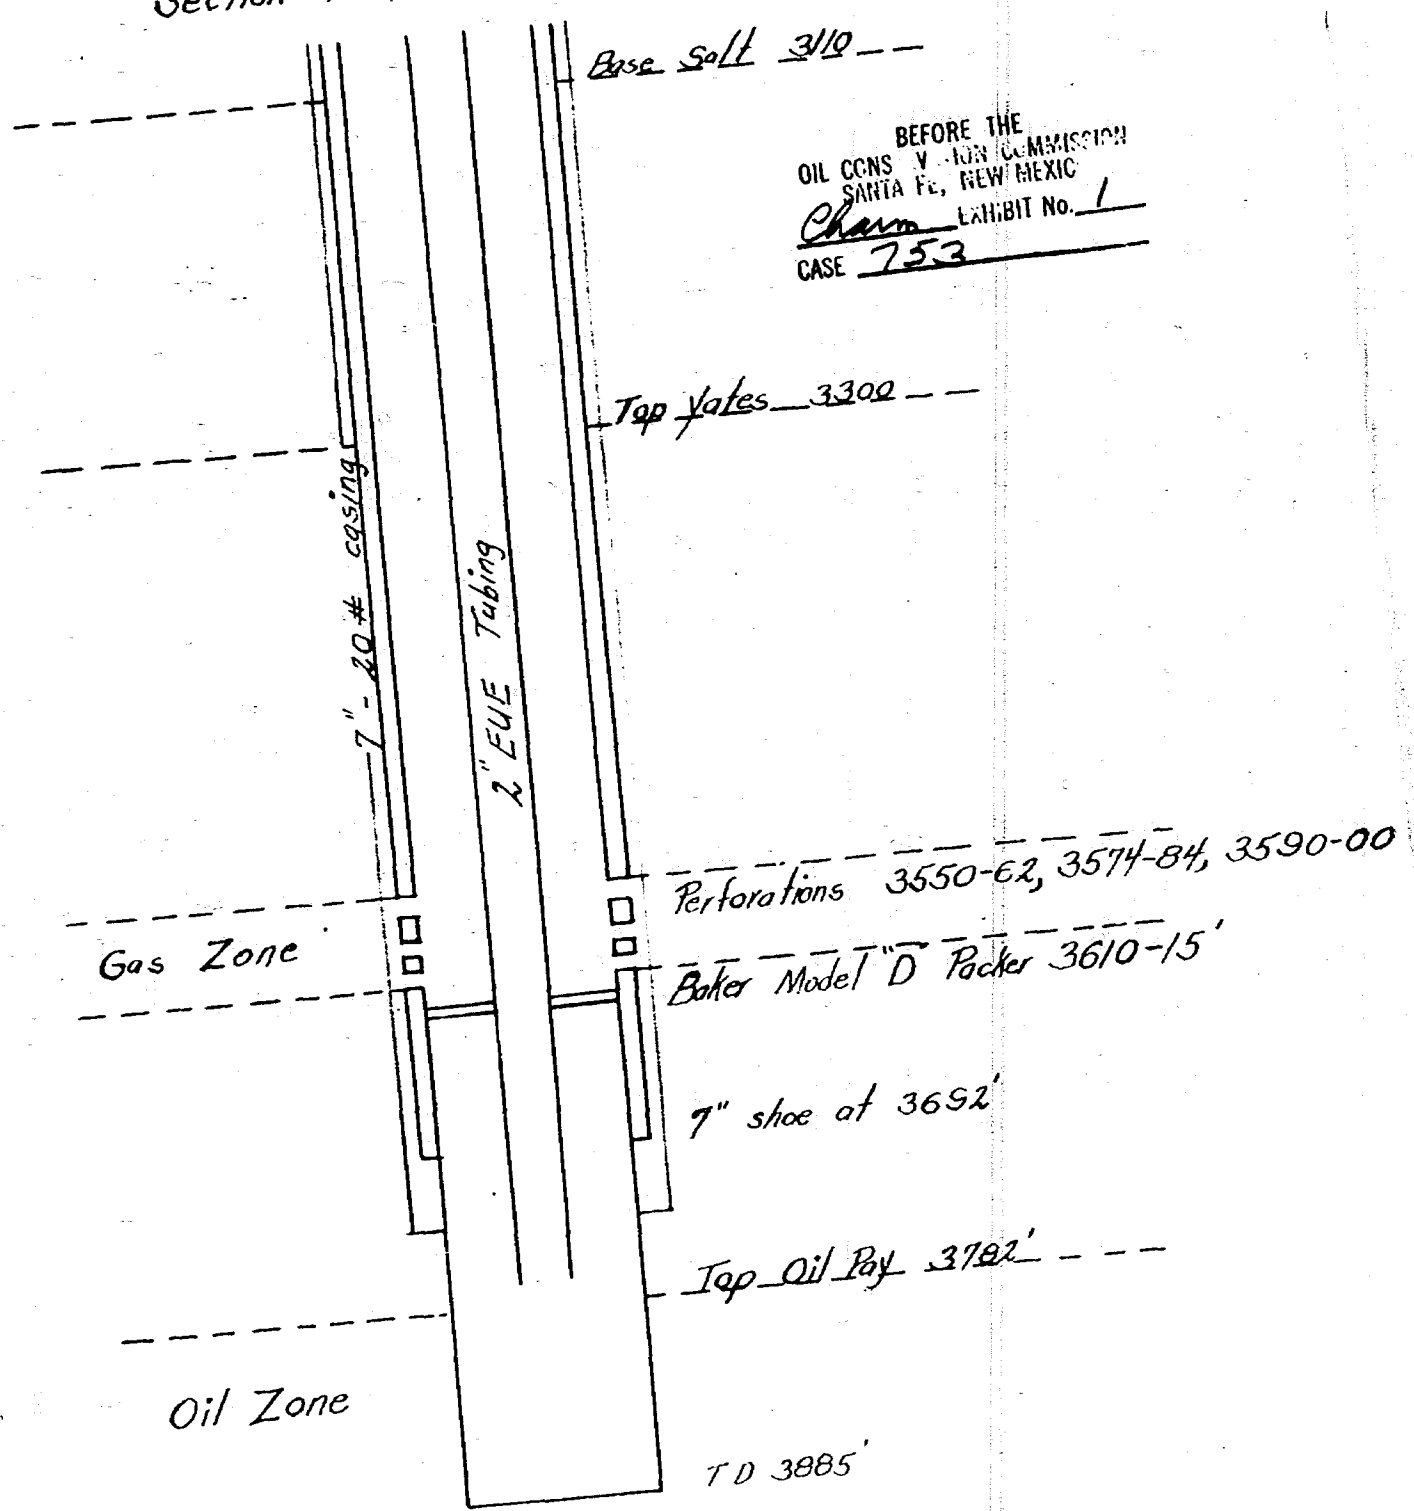 Section
Base Salt 3110
BEFORE THE
OIL CONS V TION COMMISSION
SANTA FE, NEW MEXIC
EXHIBIT No. 1
CASE 753
Top Yates 3300
7" - 20# casing
2" EUE Tubing
Perforations 3550-62, 3574-84, 3590-00
Gas Zone
Baker Model "D" Packer 3610-15'
7" shoe at 3692'
Top Oil Pay 3782'
Oil Zone
TD 3885'